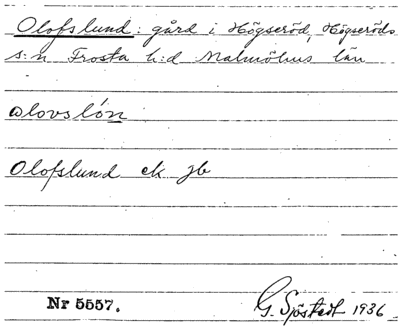 Olofslund: gård i Högseröd, Högseröds
s:n Frosta h:d Malmöhus län
olovslón
Olofslund ek jb
Nr 5557.
G. Sjöstedt 1936